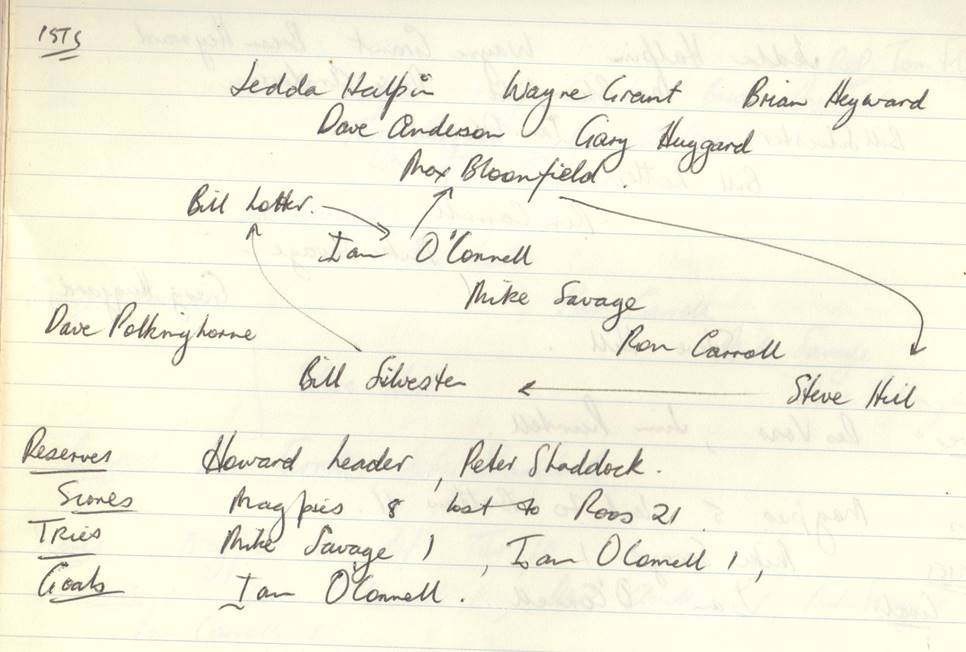 1STS
Jedda Halpin Wayne Grant Brian Heyward
Dave Anderson Gary Huggard
Max Bloomfield.
Bill Lotter.
Ian O'Connell
Mike Savage
Dave Polkinghorne
Ron Carroll
Bill Silvester Steve Hill
Reserves Howard Leader, Peter Shaddock.
Scores Magpies 8 lost to Roos 21.
Tries Mike Savage 1, Ian O'Connell 1,
Goals Ian O'Connell.